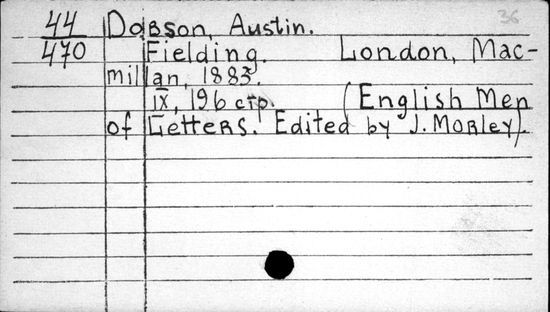 44 Dobson, Austin. 36
470 Fielding. London, Mac-
millan, 1883.
IX, 196 стр. (English Men
of Letters. Edited by J. Morley).